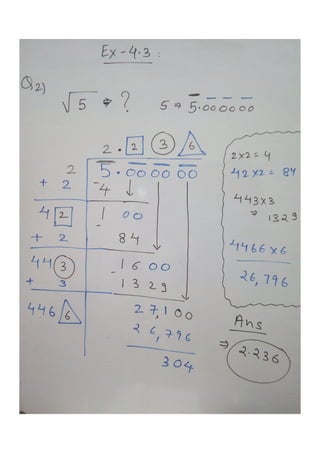 Ex-4.3 :
Q2)
√5 ⇒ ? 5 ⇒ 5.000000
2 . 2 3 6
2 5.00 00 00
+ 2 -4
4 2 1 00
+ 2 - 84
44 3 -1600
+ 3 1329
446 6 27,100
26,796
304
2×2 = 4
42×2 = 84
443×3
⇒ 1329
4466×6
26,796
Ans
⇒ 2.236